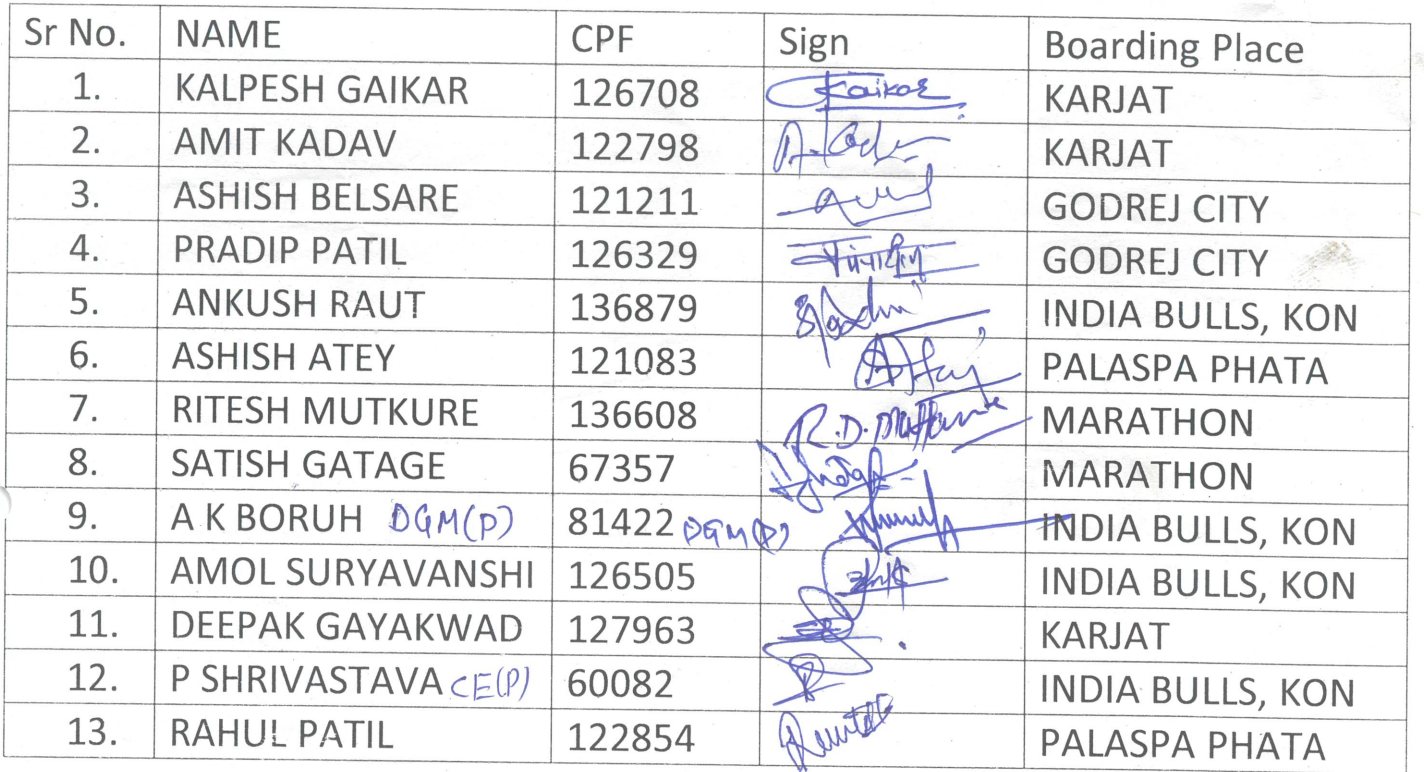 Sr No. NAME CPF Sign Boarding Place
1. KALPESH GAIKAR 126708 Gaikar KARJAT
2. AMIT KADAV 122798 KARJAT
3. ASHISH BELSARE 121211 GODREJ CITY
4. PRADIP PATIL 126329 GODREJ CITY
5. ANKUSH RAUT 136879 INDIA BULLS, KON
6. ASHISH ATEY 121083 PALASPA PHATA
7. RITESH MUTKURE 136608 R.D. MARATHON
8. SATISH GATAGE 67357 MARATHON
9. A K BORUH DGM(P) 81422 DGM(P) INDIA BULLS, KON
10. AMOL SURYAVANSHI 126505 INDIA BULLS, KON
11. DEEPAK GAYAKWAD 127963 KARJAT
12. P SHRIVASTAVA CE(P) 60082 INDIA BULLS, KON
13. RAHUL PATIL 122854 PALASPA PHATA